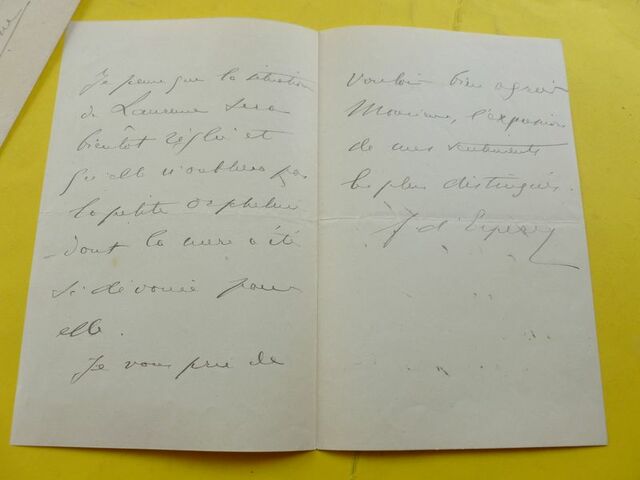 Je pense que la situation
de Laurence sera
bientôt réglée et
qu'elle n'oubliera pas
la petite orpheline
dont la mère a été
si dévouée pour
elle.
Je vous prie de
vouloir bien agréer
Monsieur, l'expression
de mes sentiments
les plus distingués.
J d'